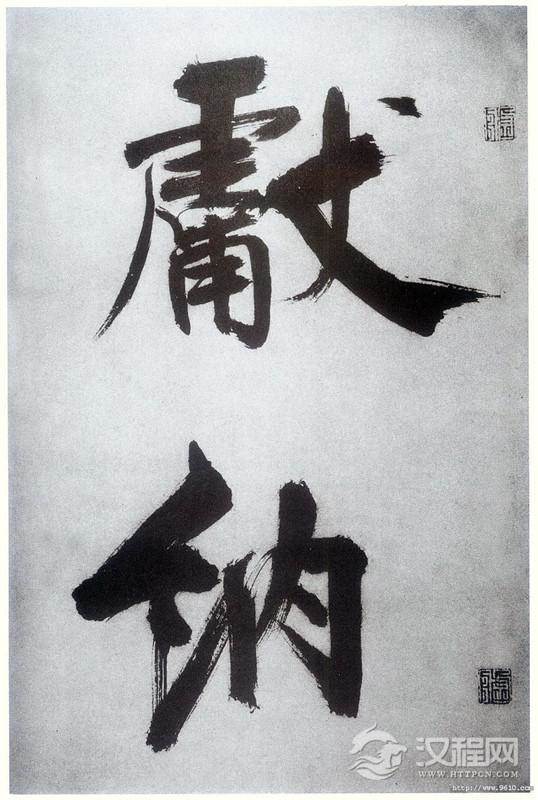 獻
納
汉程网
WWW.HTTPCN.COM
http://www.9610.com